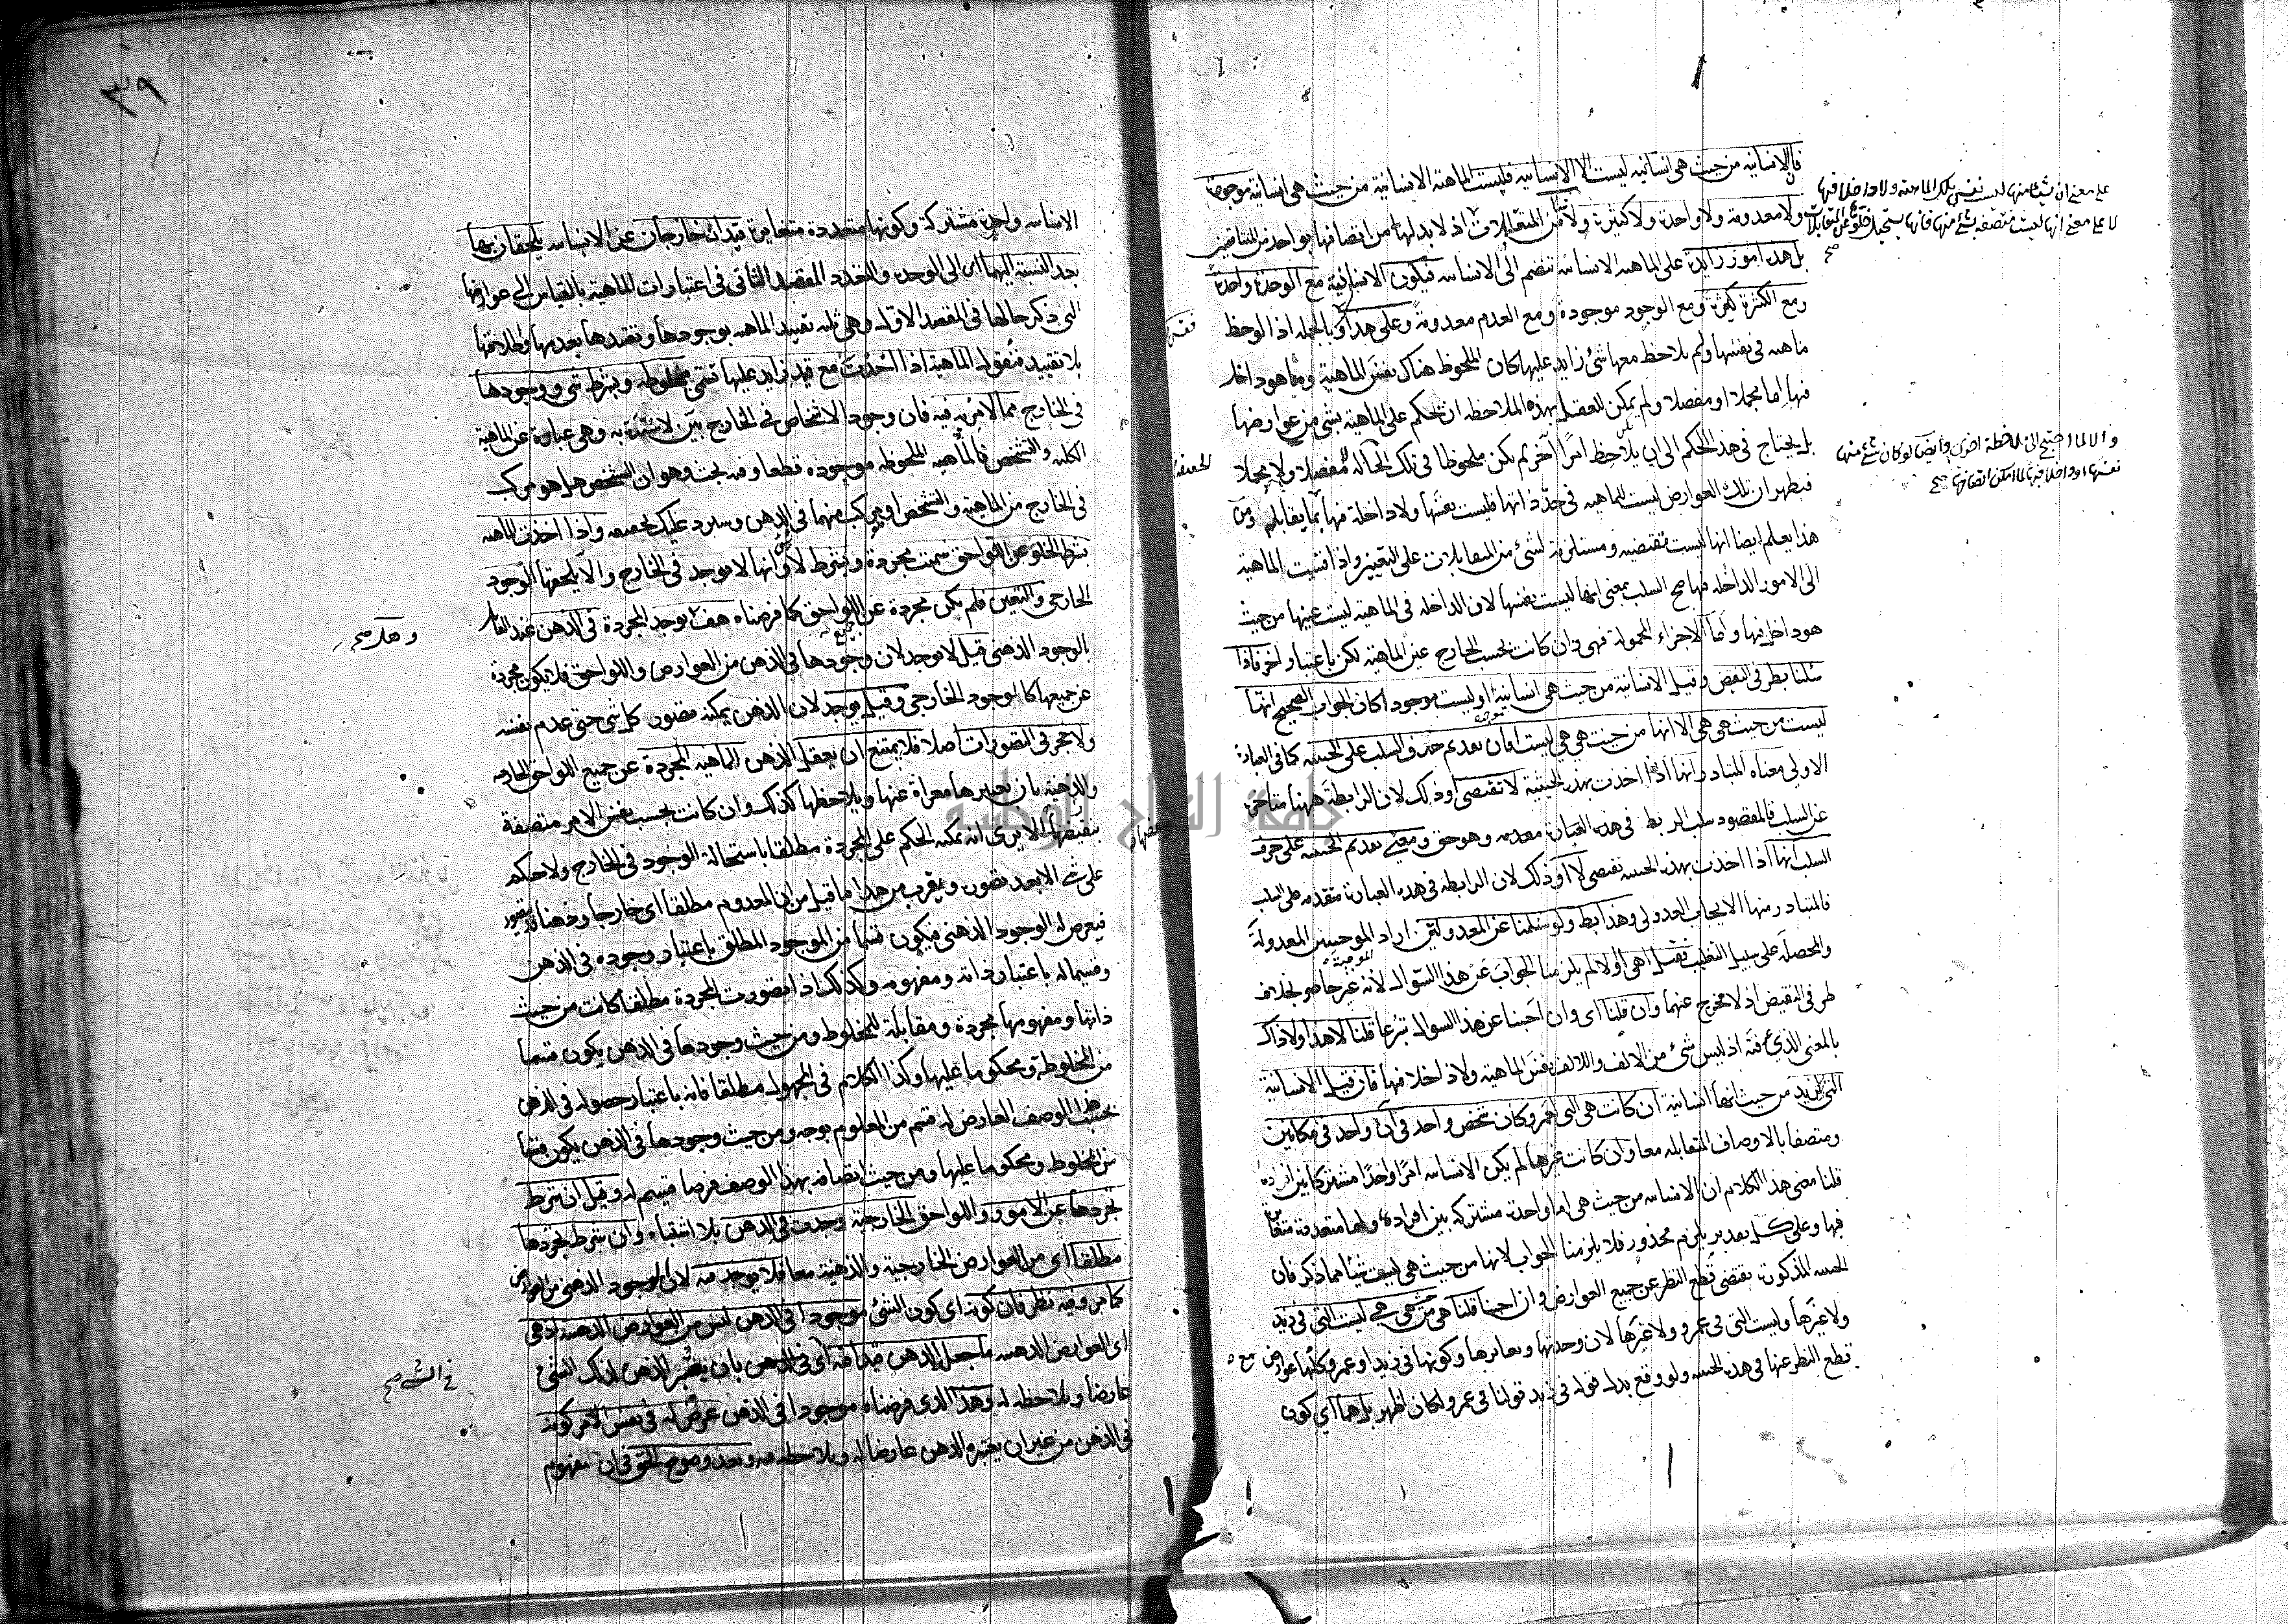 فالانسانية من حيث هى انسانية ليست الا الانسانية فليست الماهية الانسانية من حيث هى انسانية موجودة
ولا معدومة ولا واحدة ولا كثيرة ولا من المتقابلات اذ لا بد لها من اتصافها بواحد من المتناقضين
بل هذه امور زايدة على الماهية الانسانية تنضم الى الانسانية فيكون الانسانية مع الوحدة واحدة
ومع الكثرة كثيرة ومع الوجود موجودة ومع العدم معدومة وعلى هذا وبالجملة اذا لوحظ
ماهية فى نفسها ولم يلاحظ معها شئ زايد عليها كان الملحوظ هناك نفس الماهية وما هو داخل
فيها اما مجملا او مفصلا ولم يمكن للعقل بهذه الملاحظة ان يحكم على الماهية بشئ من عوارضها
بل يحتاج فى هذا الحكم الى ان يلاحظ امرا آخر لم يكن ملحوظا فى تلك الحالة لا مفصلا ولا مجملا
فيظهر ان تلك العوارض ليست للماهية فى حد ذاتها فليست نفسها ولا داخلة فيها بما يقابلهم ومن
هذا يعلم ايضا انها ليست مقتضية ومستلزمة لشئ من المتقابلات على التعيين واذا نسبت الماهية
الى الامور الداخلة فيها صح السلب بمعنى انها ليست نفسها لان الداخلة فى الماهية ليست عينها من حيث
هو داخل فيها واما الاجزاء المحمولة فهى وان كانت بحسب الخارج عين الماهية لكن باعتبار آخر فاذا
سئلنا بطرفى النقيض وقيل الانسانية من حيث هى انسانية ا او ليست موجود ا كان الجواب الصحيح انها
ليست من حيث هى هى الا انها من حيث هى هى ليست ا فان تقديم حرف السلب على الحيثية كما فى العبارة
الاولى معناه المتبادر انها اذا اخذت بهذه الحيثية لا تقتضى ا وذلك لان الرابطة ههنا متاخرة
عن السلب فالمقصود سلب الربط فى هذه العبارة مقدمة وهو حق ومعنى تقديم الحيثية على حرف
السلب انها اذا اخذت بهذه الحيثية تقتضى لا ا وذلك لان الرابطة فى هذه العبارة متقدمة على السلب
فالمتبادر منها الايجاب العدولى وهذا بط ولو سئلنا عن المعدولتين اراد الموجبتين المعدولة
والمحصلة على سبيل التغليب فقيل اهى ا او لا لم يلزمنا الجواب عن هذا السؤال لانه غير حاصر بخلاف
طرفى النقيض اذ لا مخرج عنهما وان قلنا اى وان اجبنا عن هذا السوال تبرعا قلنا لا هذا ولا ذاك
بالمعنى الذى اذ ليس شئ من الالف واللاالف نفس الماهية ولا داخلا فيها فان قيل الانسانية
التى لزيد من حيث انها انسانية ان كانت هى التى لعمرو كان شخص واحد فى آن واحد فى مكانين
ومتصفا بالاوصاف المتقابلة معا وان كانت غيرها لم يكن الانسانية امرا واحدا مشتركا بين افراده
قلنا معنى هذا الكلام ان الانسانية من حيث هى اما واحدة مشتركة بين افراده واما متعددة متغايرة
فيها وعلى كل تقدير يلزم محذور فلا يلزمنا الجواب لانها من حيث هى ليست شيئا مما ذكر فان
الحيثية المذكورة تقتضى قطع النظر عن جميع العوارض وان اجبنا قلنا هى من حيث هى هى ليست التى فى زيد
ولا غيرها وليست التى فى عمرو ولا غيرها لان وحدتها وتغايرها وكونها فى زيد او عمرو كلها عوارض
قطع النظر عنها فى هذه الحيثية ولو وقع بدل قوله فى زيد قولنا فى عمرو لكان اظهر بل هما اى كون
على معنى ان شيئا منها ليست نفس تلك الماهية ولا داخلا فيها
لا على معنى انها ليست متصفة بشئ منها فانها يستحيل خلوها عن المتقابلات
صح
والا لما احتيج الى ملاحظة اخرى وايضا لو كان شئ منها
نفسها او داخلا فيها لما امكن اتصافها صح
٣٩
الانسانية واحدة مشتركة وكونها متعددة متغايرة قيدان خارجان عن الانسانية يلحقان بها
بعد النسبة اليهما اى الى الوحدة والتعدد المقصد الثانى فى اعتبارات الماهية بالقياس الى عوارضها
التى ذكر حالها فى المقصد الاول وهى ثلثة تقييد الماهية بوجودها وتقييدها بعدمها واطلاقها
بلا تقييد فنقول الماهية اذا اخذت مع قيد زايد عليها تسمى مخلوطة وبشرط شئ ووجودها
فى الخارج مما لا مرية فيه فان وجود الاشخاص فى الخارج بين لا سترة به وهى عبارة عن الماهية
الكلية والتشخص فالماهية المخلوطة موجودة قطعا وفيه بحث وهو ان الشخص هل هو مركب
فى الخارج من الماهية والتشخص او مركب منهما فى الذهن وسيرد عليك تحقيقه واذا اخذت الماهية
بشرط الخلو عن اللواحق سميت مجردة وبشرط لا وانها لا توجد فى الخارج والا يلحقها الوجود
الخارجى والتعين فلم يكن مجردة عن اللواحق كما فرضناه هف وتوجد المجردة فى الذهن عند القائل
بالوجود الذهنى قيل لا توجد لان وجودها فى الذهن من العوارض واللواحق فلا يكون مجردة
عن جميعها كالوجود الخارجى وقيل توجد لان الذهن يمكنه تصور كل شئ حتى عدم نفسه
ولا حجر فى التصورات اصلا فلا يمتنع ان يعقل الذهن الماهية المجردة عن جميع اللواحق الخارجية
والذهنية بان يعتبرها معراة عنها ويلاحظها كذلك وان كانت بحسب نفس الامر متصفة
بنقيضها الا يرى انه يمكنه الحكم على المجردة مطلقا باستحالة الوجود فى الخارج ولا حكم
على شئ الا بعد تصوره ويقرب من هذا ما قيل من ان المعدوم مطلقا اى خارجا وذهنا قد يتصور
فيعرض له الوجود الذهنى فيكون قسما من الموجود المطلق باعتبار وجوده فى الذهن
وقسيما له باعتبار ذاته ومفهومه وكذلك اذا تصورت المجردة مطلقا كانت من حيث
ذاتها ومفهومها مجردة ومقابلة للمخلوط ومن حيث وجودها فى الذهن يكون قسما
من المخلوطة ومحكوما عليها وكذا الكلام فى المجهول مطلقا فانه باعتبار حصوله فى الذهن
بحسب هذا الوصف العارض له قسم من المعلوم بوجه ومن حيث وجودها فى الذهن يكون قسما
من المخلوط ومحكوما عليها ومن حيث اتصافه بهذا الوصف فرضا قسيم له وقيل ان شرط
تجردها عن الامور واللواحق الخارجية وجدت فى الذهن بلا اشتباه وان شرط تجردها
مطلقا اى من العوارض الخارجية والذهنية معا فلا يوجد فيه لان الوجود الذهنى من العوارض
كما مر وفيه نظر فان كونه اى كون الشئ موجودا فى الذهن ليس من العوارض الذهنية اذ هى
اى العوارض الذهنية ما جعل الذهن قيدا فيه اى فى الذهن بان يعتبر الذهن لذلك الشئ
عارضا ويلاحظه له وهذا الذى فرضناه موجودا فى الذهن عرض له فى نفس الامر كونه
فى الذهن من غير ان يعتبره الذهن عارضا له ويلاحظه فيه وبعد وضوح الحق فى ان مفهوم
فى الشئ صح
جامعة النجاح الوطنية